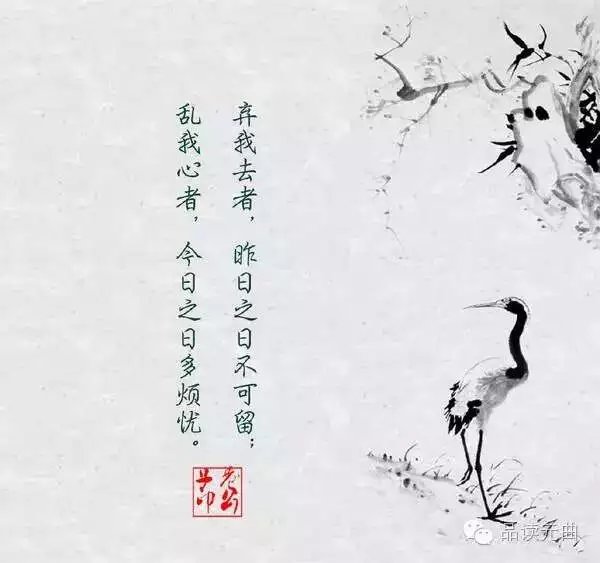 弃我去者，昨日之日不可留；
乱我心者，今日之日多烦忧。
品读元曲